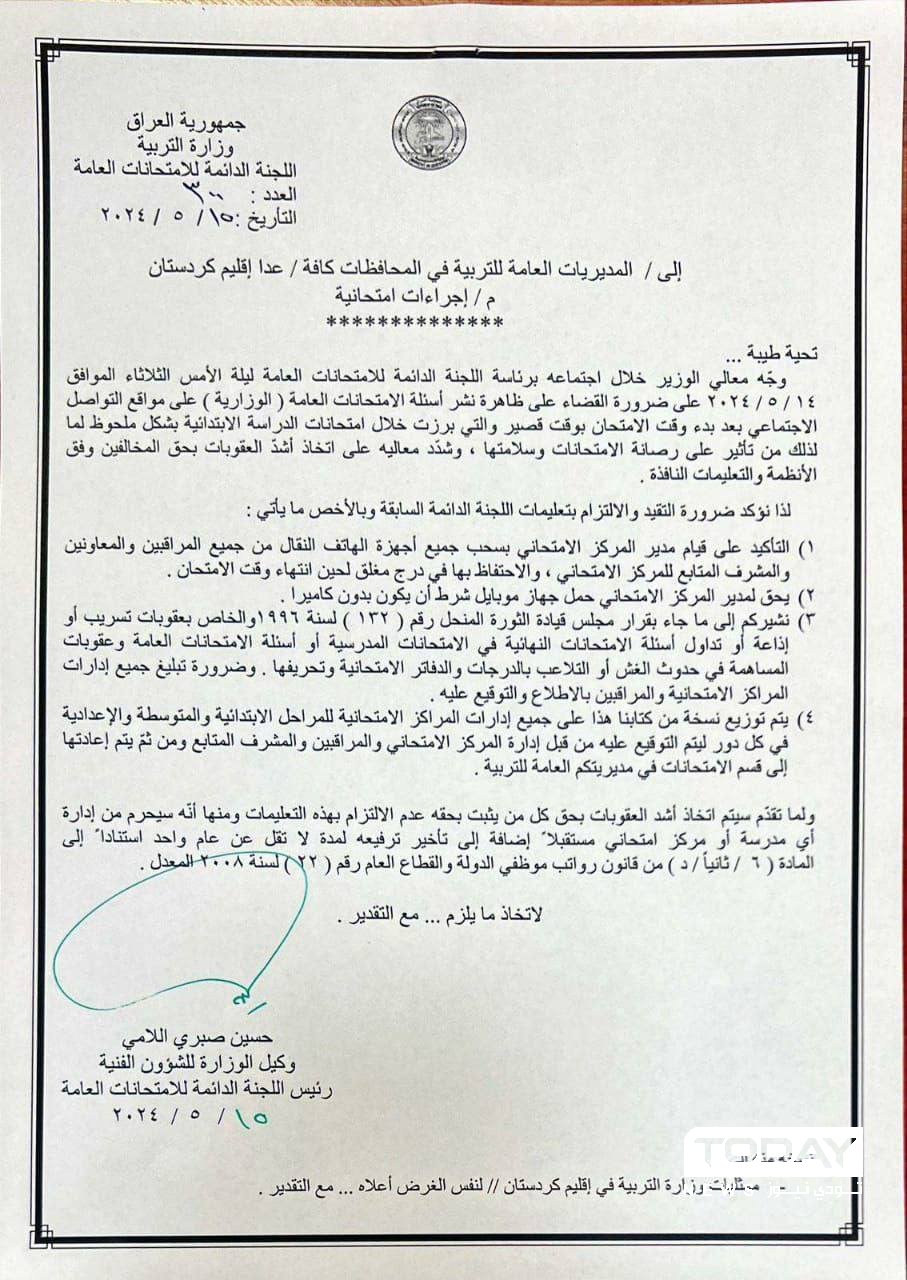 جمهورية العراق
وزارة التربية
اللجنة الدائمة للامتحانات العامة
العدد : ٣٠٠
التأريخ : ١٥/ ٥ / ٢٠٢٤
إلى / المديريات العامة للتربية في المحافظات كافة / عدا إقليم كردستان
م / إجراءات امتحانية
**************
تحية طيبة ...
وجّه معالي الوزير خلال اجتماعه برئاسة اللجنة الدائمة للامتحانات العامة ليلة الأمس الثلاثاء الموافق
١٤ / ٥ / ٢٠٢٤ على ضرورة القضاء على ظاهرة نشر أسئلة الامتحانات العامة ( الوزارية ) على مواقع التواصل
الاجتماعي بعد بدء وقت الامتحان بوقت قصير والتي برزت خلال امتحانات الدراسة الابتدائية بشكل ملحوظ لما
لذلك من تأثير على رصانة الامتحانات وسلامتها ، وشدّد معاليه على اتخاذ أشدّ العقوبات بحق المخالفين وفق
الأنظمة والتعليمات النافذة .
لذا نؤكد ضرورة التقيد والالتزام بتعليمات اللجنة الدائمة السابقة وبالأخص ما يأتي :
١) التأكيد على قيام مدير المركز الامتحاني بسحب جميع أجهزة الهاتف النقال من جميع المراقبين والمعاونين
والمشرف المتابع للمركز الامتحاني ، والاحتفاظ بها في درج مغلق لحين انتهاء وقت الامتحان .
٢) يحق لمدير المركز الامتحاني حمل جهاز موبايل شرط أن يكون بدون كاميرا .
٣) نشيركم إلى ما جاء بقرار مجلس قيادة الثورة المنحل رقم ( ١٣٢ ) لسنة ١٩٩٦والخاص بعقوبات تسريب أو
إذاعة أو تداول أسئلة الامتحانات النهائية في الامتحانات المدرسية أو أسئلة الامتحانات العامة وعقوبات
المساهمة في حدوث الغش أو التلاعب بالدرجات والدفاتر الامتحانية وتحريفها . وضرورة تبليغ جميع إدارات
المراكز الامتحانية والمراقبين بالاطلاع والتوقيع عليه .
٤) يتم توزيع نسخة من كتابنا هذا على جميع إدارات المراكز الامتحانية للمراحل الابتدائية والمتوسطة والإعدادية
في كل دور ليتم التوقيع عليه من قبل إدارة المركز الامتحاني والمراقبين والمشرف المتابع ومن ثمّ يتم إعادتها
إلى قسم الامتحانات في مديريتكم العامة للتربية .
ولما تقدّم سيتم اتخاذ أشد العقوبات بحق كل من يثبت بحقه عدم الالتزام بهذه التعليمات ومنها أنّه سيحرم من إدارة
أي مدرسة أو مركز امتحاني مستقبلاً إضافة إلى تأخير ترفيعه لمدة لا تقل عن عام واحد استناداً إلى
المادة ( ٦ / ثانياً / د ) من قانون رواتب موظفي الدولة والقطاع العام رقم ( ٢٢ ) لسنة ٢٠٠٨ المعدل .
لاتخاذ ما يلزم ... مع التقدير .
حسين صبري اللامي
وكيل الوزارة للشؤون الفنية
رئيس اللجنة الدائمة للامتحانات العامة
١٥ / ٥ / ٢٠٢٤
TODAY
تودي نيوز
- ممثليات وزارة التربية في إقليم كردستان // لنفس الغرض أعلاه ... مع التقدير .